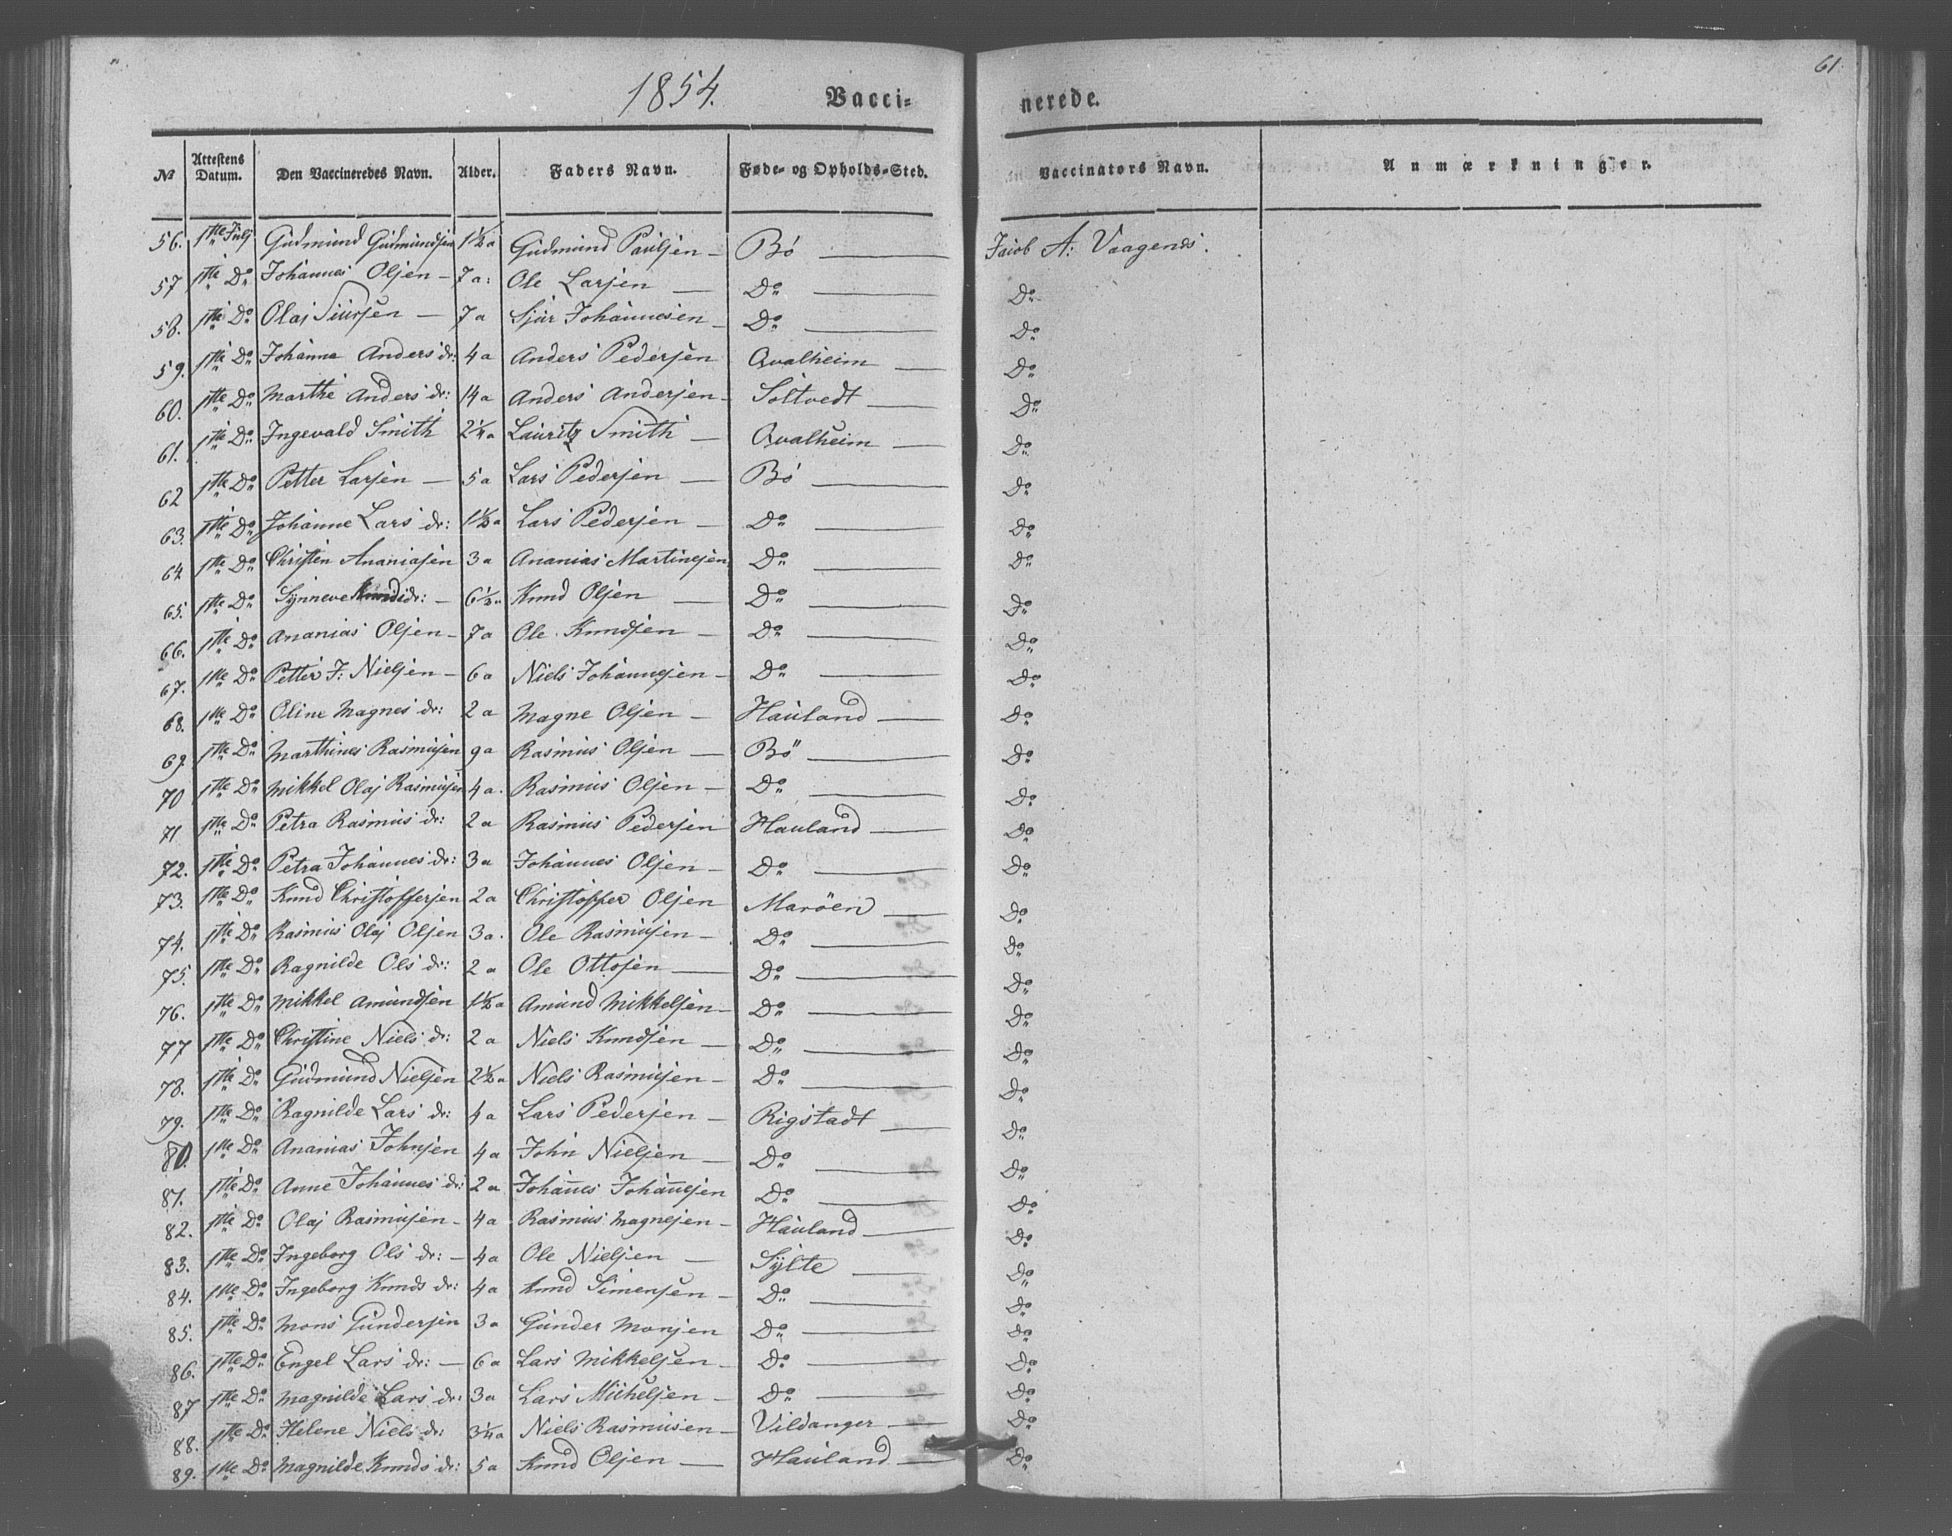 61.
1854. Vacci= nerede.
№ Attestens Datum. Den Vaccineredes Navn. Alder. Faders Navn. Føde= og Opholds=Sted. Vaccinators Navn. Anmærkninger.
56. 1ste Julj Gudmund Gudmundsen 1½ a Gudmund Paulsen – Bö Jacob A: Vaagenes.
57 1ste Do Johannes Olsen – 7 a: Ole Larsen – Do Do
58. 1ste Do Olaj Siursen – 7 a Sjur Johannesen – Do Do
59. 1ste Do Johanna Anders dr: 4 a Anders Pedersen Qvalheim Do
60. 1ste Do Marthe Anders dr: 14 a Anders Andersen – Soltvedt Do
61. 1ste Do Ingevald Smith 2¼ a Lauritz Smith – Qvalheim Do
62 1ste Do Petter Larsen – 5 a Lars Pedersen – Bö Do
63. 1ste Do Johanne Lars dr: 1½ a Lars Pedersen – Do Do
64 1ste Do Christen Ananiasen 3 a Ananias Martinesen Do Do
65. 1ste Do Synneve Knuds dr: – 6½ a Knud Olsen – Do Do
66. 1ste Do Ananias Olsen – 7 a Ole Knudsen – Do Do
67. 1ste Do Petter J: Nielsen – 6 a Niels Johannesen – Do Do
68. 1ste Do Oline Magnes dr: 2 a Magne Olsen – Hauland Do
69 1ste Do Marthines Rasmusen 9 a Rasmus Olsen – Bö Do
70 1ste Do Mikkel Olaj Rasmusen 4 a. Rasmus Olsen – Do Do
71 1ste Do Petra Rasmus dr: 2 a Rasmus Pedersen Hauland Do
72. 1ste Do Petra Johannes dr: 3 a Johannes Olsen – Do Do
73. 1ste Do Knud Christoffersen 2 a Christoffer Olsen Maröen Do
74. 1ste Do Rasmus Olaj Olsen 3 a. Ole Rasmusen – Do Do
75. 1ste Do Ragnilde Ols dr: 2 a Ole Ottosen – Do Do
76. 1ste Do Mikkel Amundsen 1½ a Amund Mikkelsen – Do Do
77 1ste Do Christine Niels dr: 2 a Niels Knudsen – Do Do
78. 1ste Do Gudmund Nielsen 2½ a Niels Rasmusen – Do Do
79. 1ste Do Ragnilde Lars dr: 4 a Lars Pedersen – Rigstadt Do
80. 1ste Do Ananias Johnsen 4 a John Nielsen – Do Do
81. 1ste Do Anne Johannes dr: 2 a Johañes Johañesen Do Do
82. 1ste Do Olaj Rasmusen – 4 a Rasmus Magnesen – Hauland Do
83. 1ste Do Ingeborg Ols dr: – 4 a Ole Nielsen – Sylte Do
84. 1ste Do Ingeborg Knuds dr: 4 a Knud Simensen – Do Do
85. 1ste Do Mons Gundersen 3 a Gunder Monsen Do Do
86. 1ste Do Engel Lars dr: – 6 a Lars Mikkelsen – Do Do
87 1ste Do Magnilde Lars dr: 3 a Lars Michelsen – Do Do
88. 1ste Do Helene Niels dr: 3¼ a Niels Rasmusen – Vildanger Do
89. 1ste Do Magnilde Knuds dr: 5 a Knud Olsen – Hauland Do